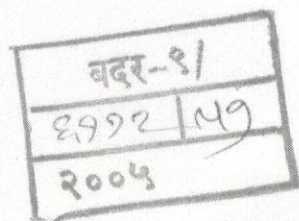 बदर-९/
६११२/५१
२००५